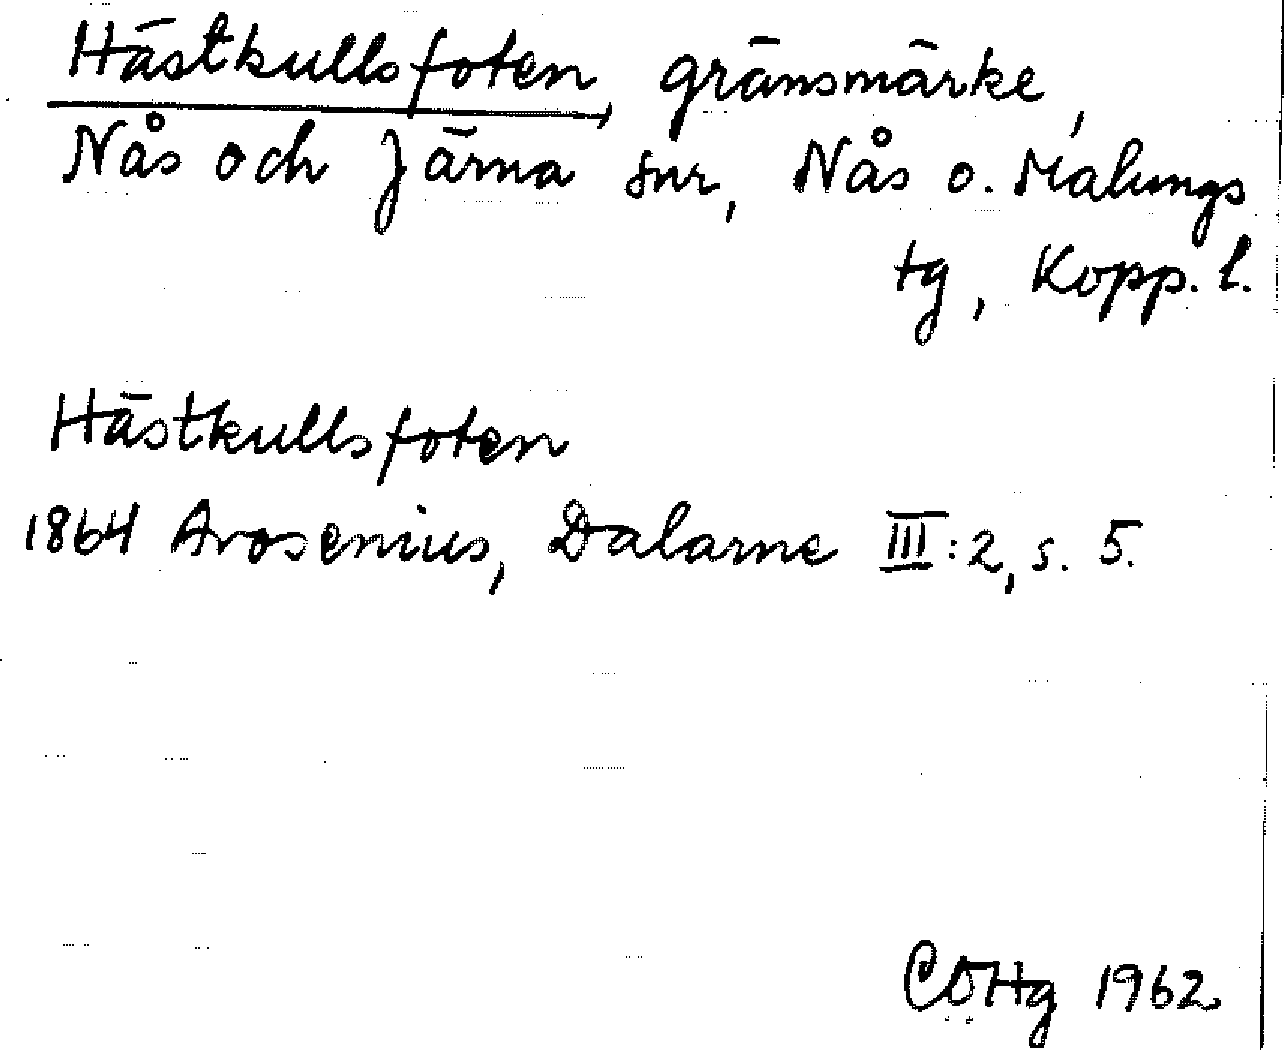 Hästkullsfoten, gränsmärke,
Nås och Järna snr, Nås o. Malungs
tg, Kopp. l.
Hästkullsfoten
1864 Arosenius, Dalarne III:2, s. 5.
COHg 1962